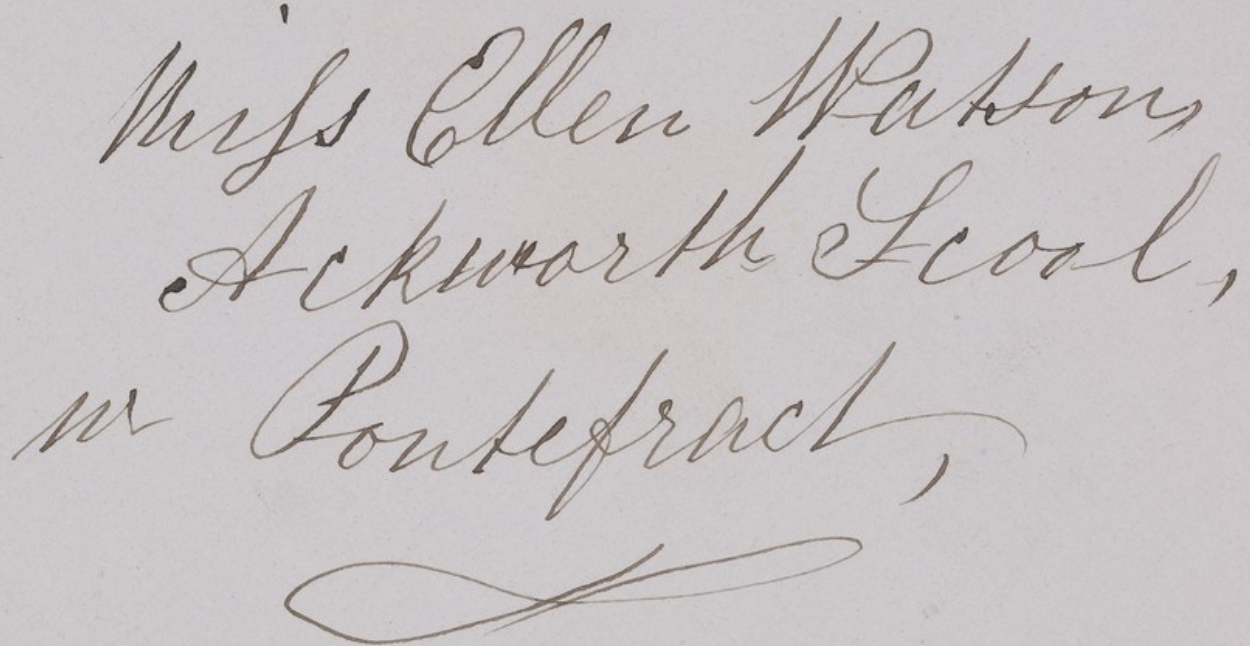 Miss Ellen Watson,
Ackworth Scool,
nr Pontefract,